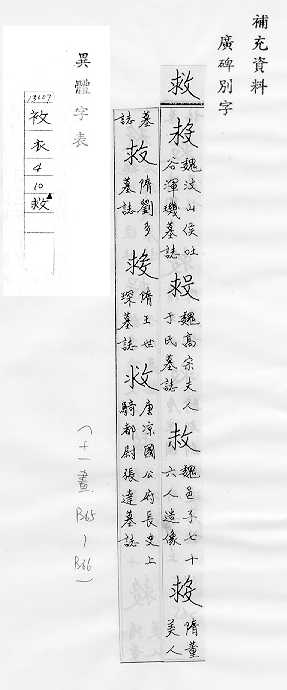 補充資料
廣碑別字
救
魏波山侯吐
谷渾璣墓誌
魏高宗夫人
于氏墓誌
魏邑子七十
六人造像
隋董
美人
墓
誌
隋劉多
墓誌
隋王世
琛墓誌
唐凉國公府長史上
騎都尉張達墓誌
異體字表
衣
4
10
救
(十一畫 B65-B66)